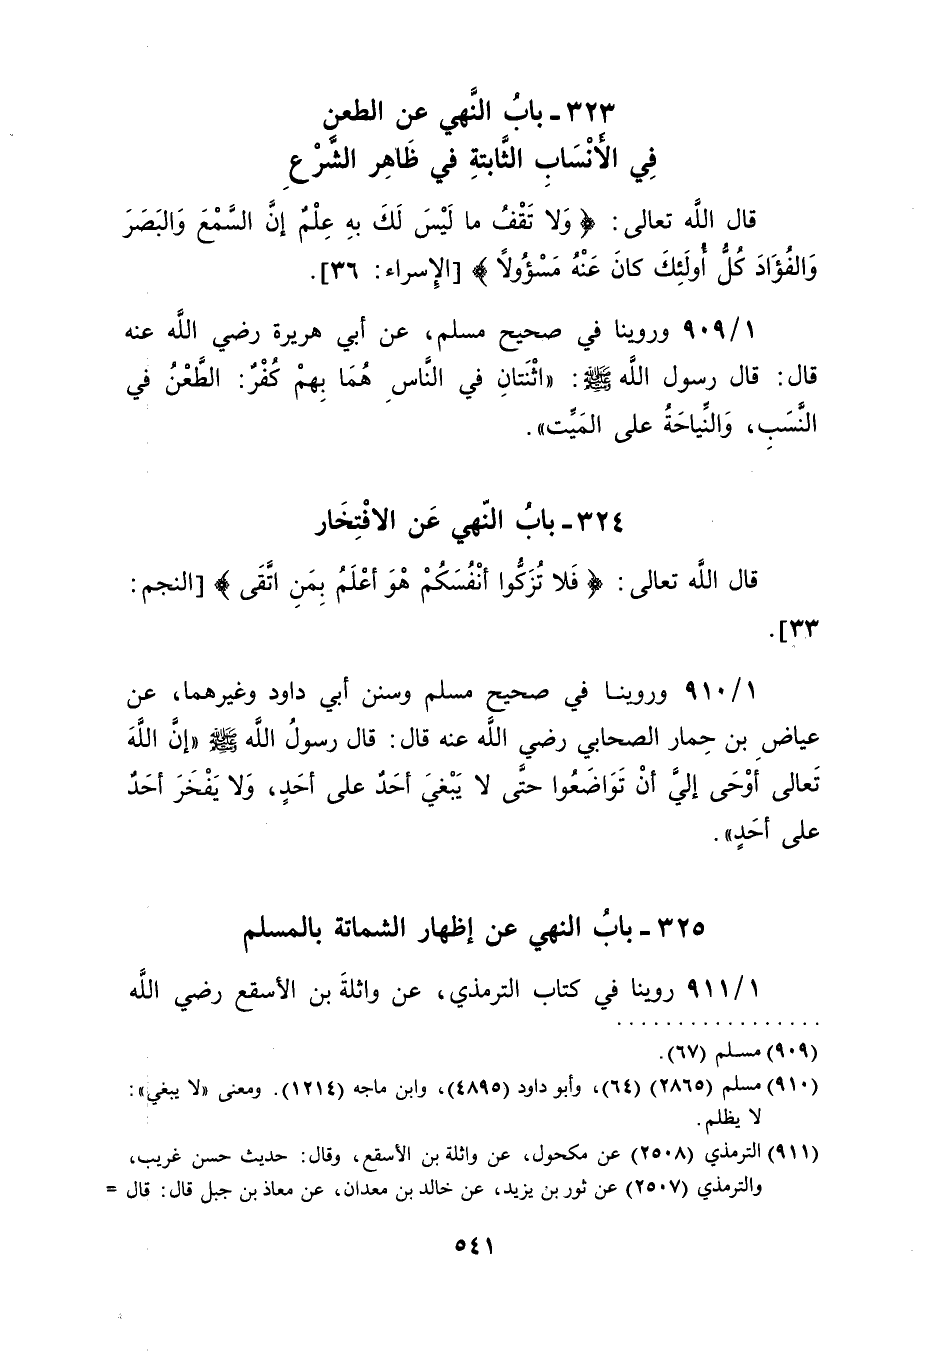 ٣٢٣ - بابُ النَّهي عن الطعنِ
فِي الأَنْسَابِ الثَّابتةِ في ظَاهِر الشَّرْعِ
قال اللَّه تعالى: ﴿ وَلا تَقْفُ ما لَيْسَ لَكَ بهِ عِلْمٌ إنَّ السَّمْعَ وَالبَصَرَ
وَالفُؤَادَ كُلُّ أُولَئِكَ كانَ عَنْهُ مَسْؤُولاً ﴾ [الإسراء: ٣٦].
٩٠٩/١ وروينا في صحيح مسلم، عن أبي هريرة رضي اللَّه عنه
قال: قال رسول اللَّه ﷺ: «اثْنَتانِ في النَّاسِ هُمَا بِهمْ كُفْرٌ: الطَّعْنُ في
النَّسَبِ، وَالنِّياحَةُ على المَيِّت».
٣٢٤ - بابُ النّهي عَن الافْتِخَار
قال اللَّه تعالى: ﴿ فَلا تُزَكُّوا أنْفُسَكُمْ هُوَ أعْلَمُ بِمَنِ اتَّقَى ﴾ [النجم:
٣٣].
٩١٠/١ وروينا في صحيح مسلم وسنن أبي داود وغيرهما، عن
عياضِ بن حِمار الصحابي رضي اللَّه عنه قال: قال رسولُ اللَّه ﷺ «إنَّ اللَّهَ
تَعالى أوْحَى إليَّ أنْ تَوَاضَعُوا حتَّى لا يَبْغيَ أحَدٌ على أحَدٍ، وَلا يَفْخَرَ أحَدٌ
على أحَدٍ».
٣٢٥ - بابُ النهي عن إظهار الشماتة بالمسلم
٩١١/١ روينا في كتاب الترمذي، عن واثلةَ بن الأسقع رضي اللَّه
(٩٠٩) مسلم (٦٧).
(٩١٠) مسلم (٢٨٦٥) (٦٤)، وأبو داود (٤٨٩٥)، وابن ماجه (١٢١٤). ومعنى «لا يبغي»:
لا يظلم.
(٩١١) الترمذي (٢٥٠٨) عن مكحول، عن واثلة بن الأسقع، وقال: حديث حسن غريب،
والترمذي (٢٥٠٧) عن ثور بن يزيد، عن خالد بن معدان، عن معاذ بن جبل قال: قال =
٥٤١